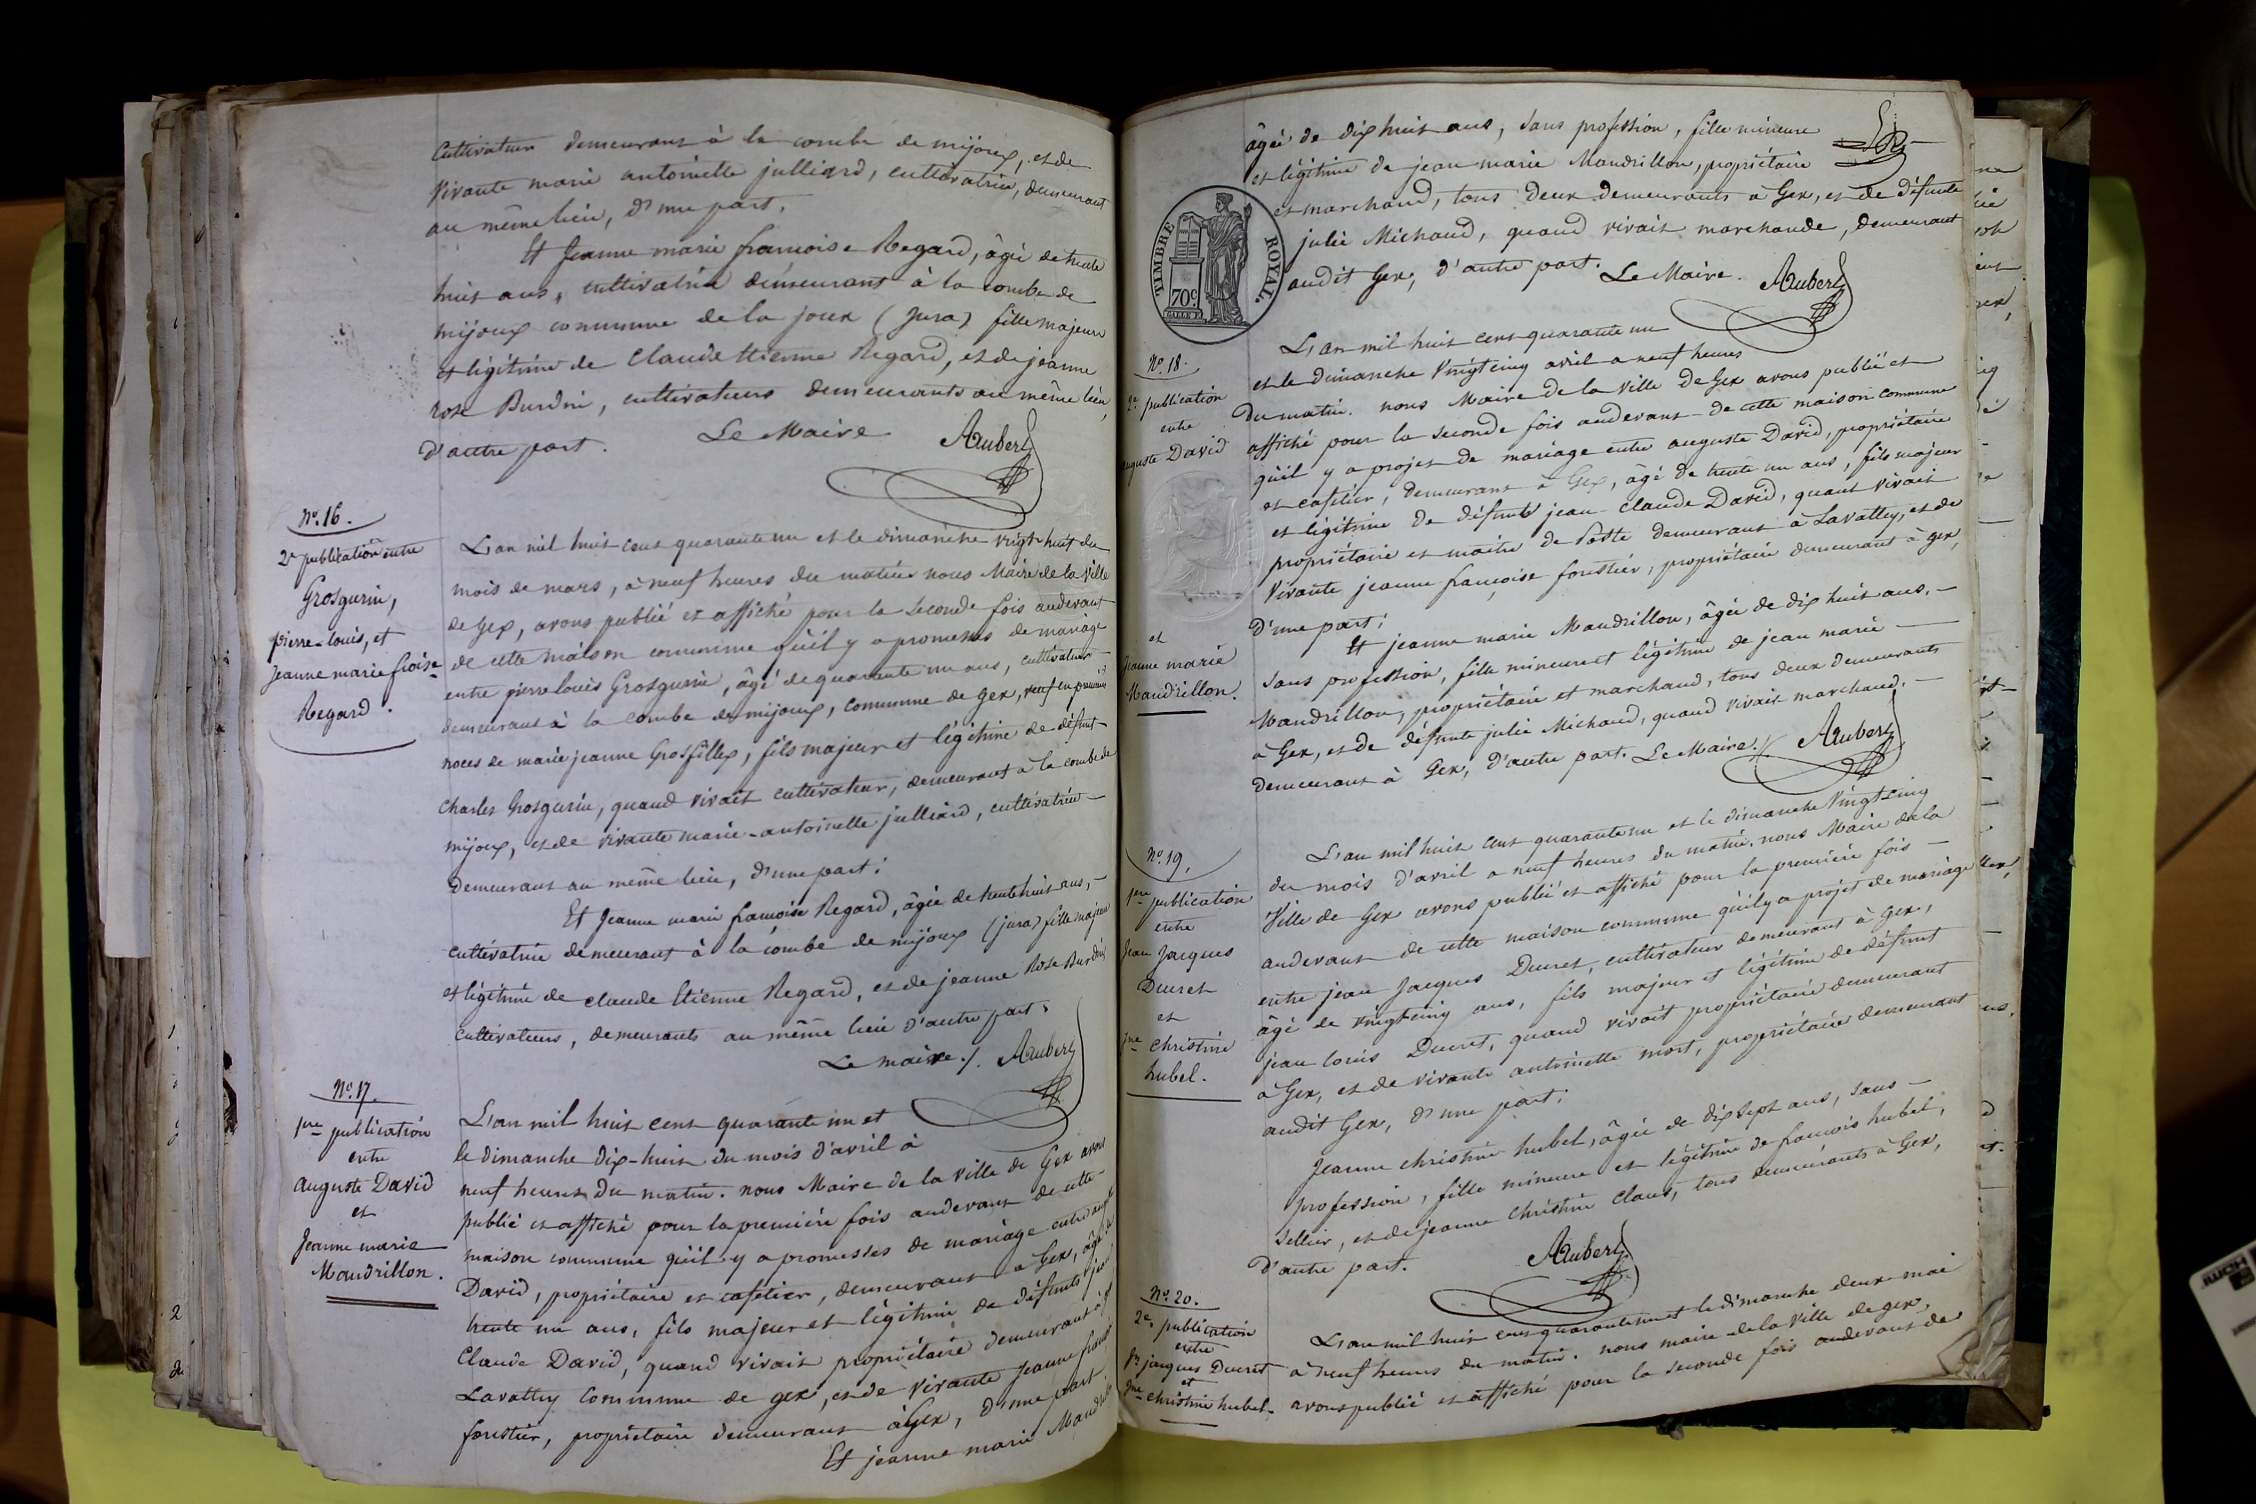 Cultivateur demeurant à la combe de mijoux, et de
vivante marie antoinette julliard, cultivatrice, demeurant
au même lieu, d'une part.
Et Jeanne marie françoise Regard, âgée de trente
huit ans, cultivatrice demeurant à la combe de
mijoux commune de la joux (Jura) fille majeure
et légitime de Claude Etienne Regard, et de jeanne
rose Burdin, cultivateurs demeurants au même lieu,
d'autre part. Le Maire Aubert
No. 16.
2e publication entre
Grosgurin,
pierre-louis, et
Jeanne marie froise
Regard.
L'an mil huit cent quarante un et le dimanche vingt huit du
mois de mars, à neuf heures du matin nous Maire de la Ville
de Gex, avons publié et affiché pour la seconde fois audevant
de cette maison commune qu'il y a promesses de mariage
entre pierre louis Grosgurin, âgé de quarante un ans, cultivateur
demeurant à la combe de mijoux, commune de Gex, veuf en premières
noces de marie jeanne Grosfillex, fils majeur et légitime de défunt
Charles Grosgurin, quand vivait cultivateur, demeurant à la combe de
mijoux, et de vivante marie-antoinette julliard, cultivatrice
demeurant au même lieu, d'une part;
Et Jeanne marie françoise Regard, âgée de trente huit ans,
cultivatrice demeurant à la combe de mijoux (jura) fille majeure
et légitime de claude Etienne Regard, et de jeanne Rose Burdin
cultivateurs, demeurants au même lieu d'autre part.
Le maire./. Aubert
No. 17.
1ere publication
entre
auguste David
et
Jeanne marie
Mandrillon.
L'an mil huit cent quarante un et
le dimanche dix-huit du mois d'avril à
neuf heures du matin. nous Maire de la Ville de Gex avons
publié et affiché pour la première fois audevant de cette
maison commune qu'il y a promesses de mariage entre
David, propriétaire et cafetier, demeurant à Gex, âgé de
trente un ans, fils majeur et légitime de défunt jean
Claude David, quand vivait propriétaire demeurant à
Lavattey commune de gex, et de vivante Jeanne
forestier, propriétaire demeurant à Gex, d'une part
Et jeanne marie
âgée de dix huit ans, sans profession, fille mineure
et légitime de jean marie Mandrillon, propriétaire
et marchand, tous deux demeurants à Gex, et de défunte
julie Michaud, quand vivait marchande, demeurant
audit Gex, d'autre part. Le Maire. Aubert
TIMBRE ROYAL.
70c.
No. 18.
2e publication
entre
auguste David
et
Jeanne marie
Mandrillon.
L'an mil huit cent quarante un
et le dimanche vingt cinq avril a neuf heures
du matin. nous Maire de la ville de Gex avons publié et
affiché pour la seconde fois audevant de cette maison commune
qu'il y a projet de mariage entre auguste David, propriétaire
et cafetier, demeurant à Gex, âgé de trente un ans, fils majeur
et légitime de défunt jean-Claude David, quant vivait
propriétaire et maitre de Poste demeurant à Lavattey, et de
vivante jeanne françoise forestier, propriétaire demeurant à gex,
d'une part;
Et jeanne marie Mandrillon, âgée de dix huit ans,
sans profession, fille mineure et légitime de jean marie
Mandrillon, propriétaire et marchand, tous deux demeurants
à Gex, et de défunte julie Michaud, quand vivait marchand.
demeurant à Gex, d'autre part. Le Maire./. Aubert
No. 19.
1ere publication
entre
Jean Jacques
Ducret
et
Jne christine
hubel.
L'an mil huit cent quarante un et le dimanche vingt cinq
du mois d'avril a neuf heures du matin. nous Maire de la
Ville de Gex avons publié et affiché pour la première fois
audevant de cette maison commune qu'il y a projet de mariage
entre jean Jacques Ducret, cultivateur demeurant à Gex,
âgé de vingt cinq ans, fils majeur et légitime de défunt
jean louis Ducret, quand vivait propriétaire demeurant
à Gex, et de vivante antoinette mort, propriétaire demeurant
audit Gex, d'une part;
Jeanne christine hubel, âgée de dix sept ans, sans
profession, fille mineure et légitime de françois hubel,
sellier, et de jeanne christine Claus, tous demeurants à Gex,
d'autre part. Aubert
No. 20.
2e. publication
entre
jacques Ducret
et
Jne christine hubel.
L'an mil huit cent quarante un et le dimanche deux mai
à neuf heures du matin. nous maire de la Ville de gex,
avons publié et affiché pour la seconde fois audevant de